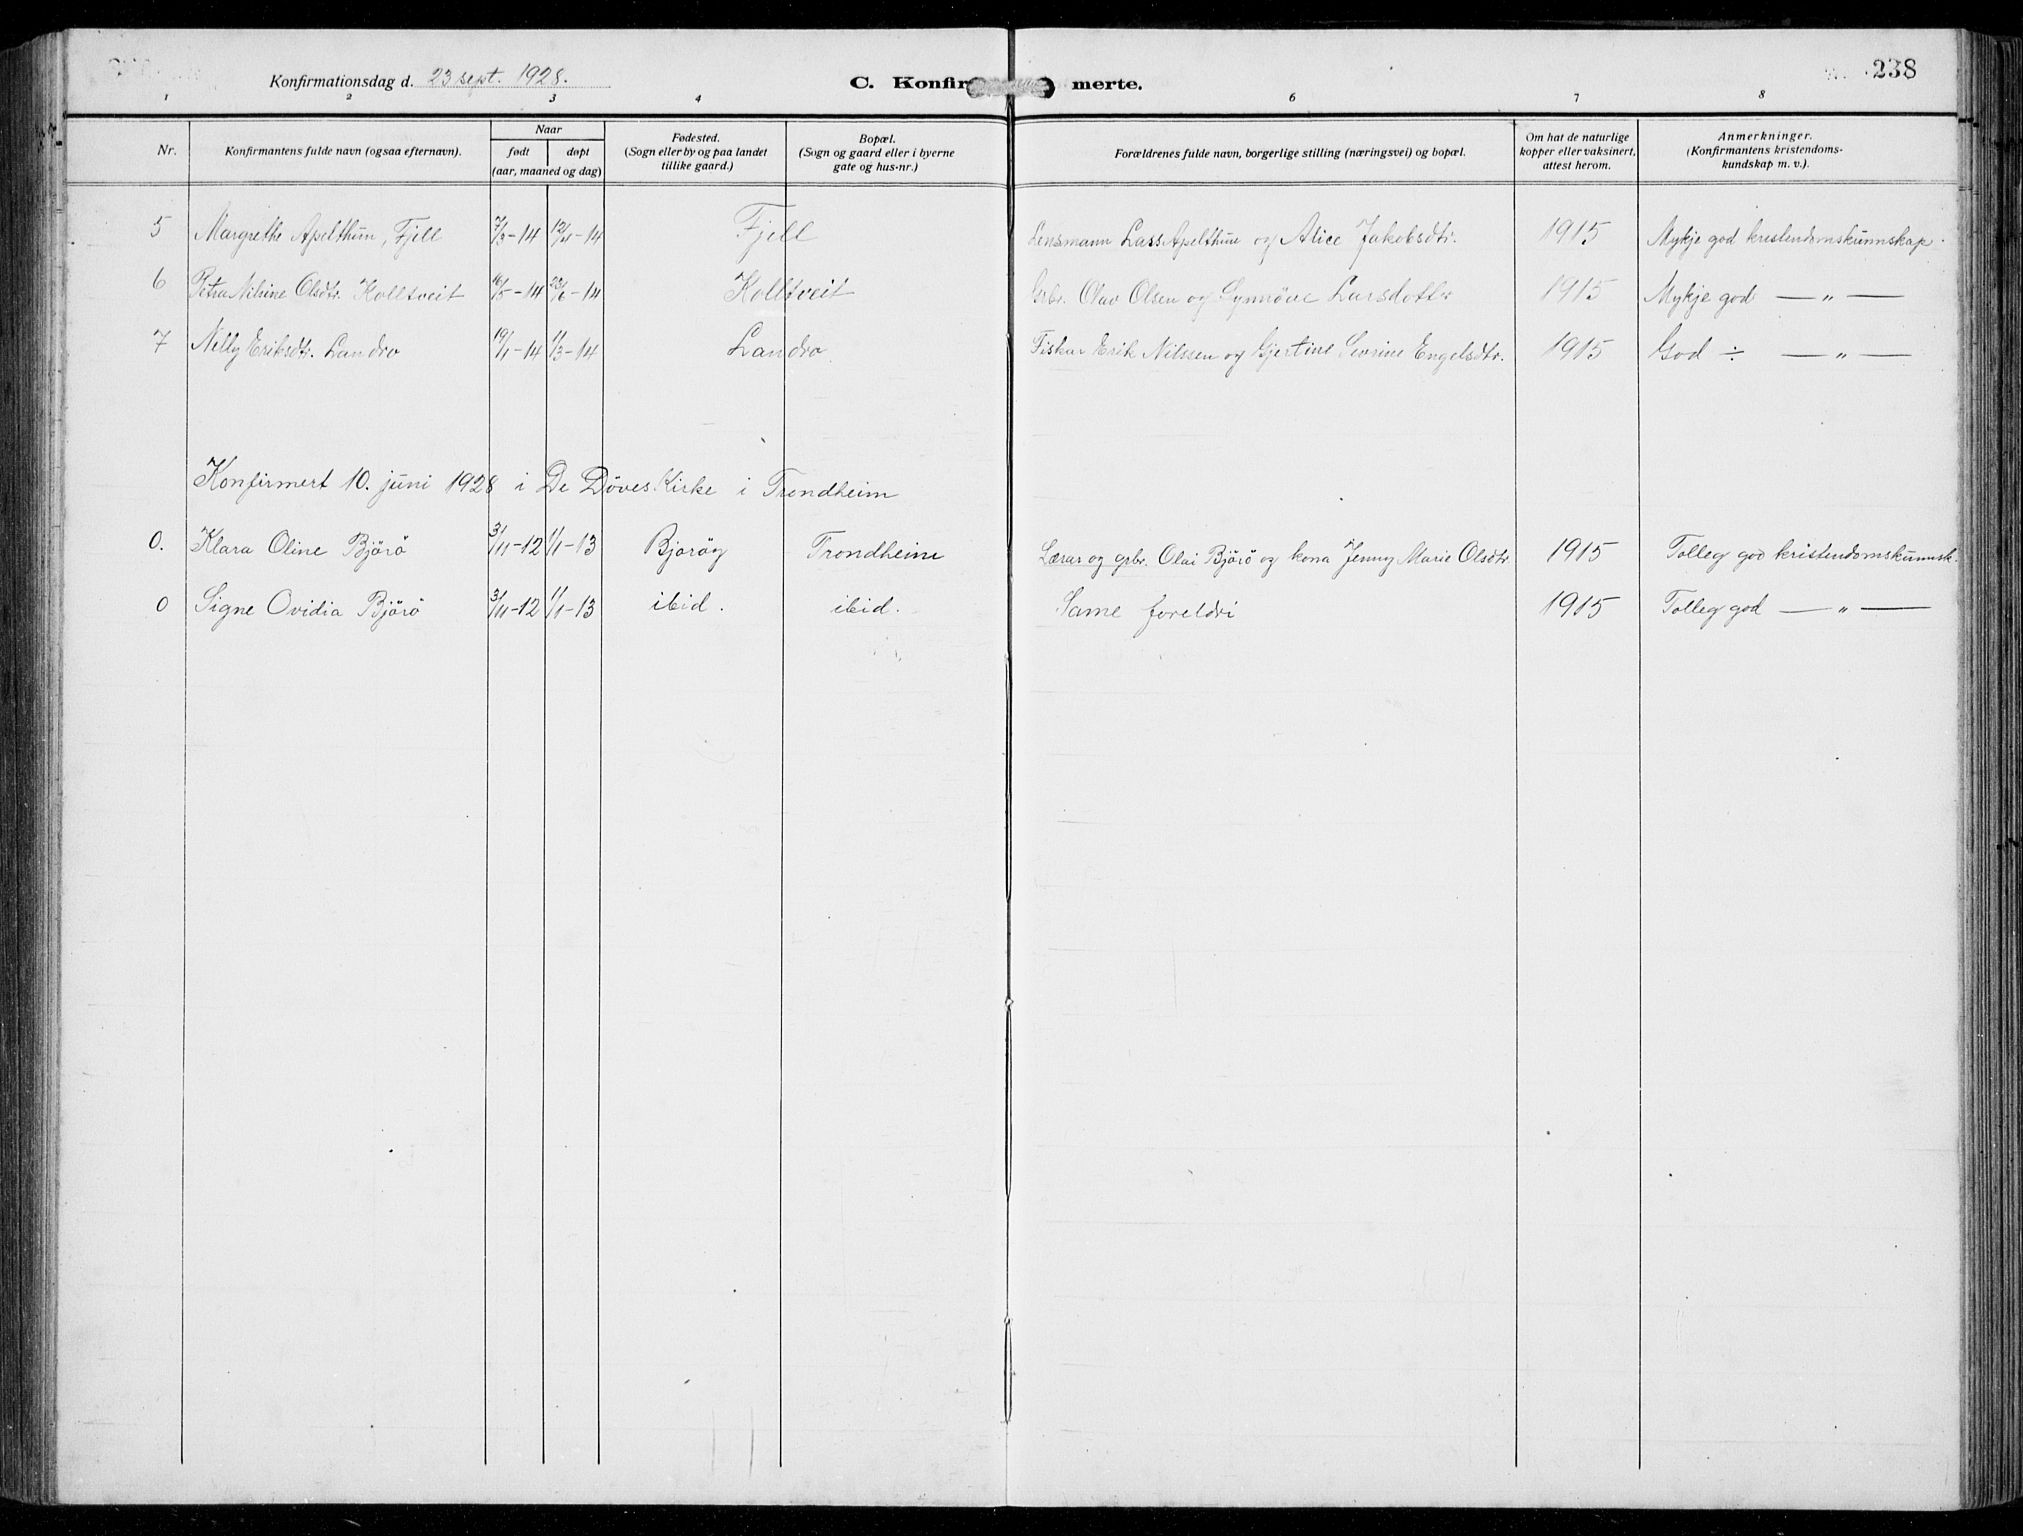 Konfirmationsdag d. 23 sept. 1928. C. Konfir merte. 238
1 2 3 4 6 7 8
Nr.
Konfirmantens fulde navn (ogsaa efternavn).
Naar
født døpt
(aar, maaned og dag)
Fødested.
(Sogn eller by og paa landet
tillike gaard.)
Bopæl.
(Sogn og gaard eller i byerne
gate og hus-nr.)
Forældrenes fulde navn, borgerlige stilling (næringsvei) og bopæl.
Om hat de naturlige
kopper eller vaksinert,
attest herom.
Anmerkninger.
(Konfirmantens kristendoms-
kundskap m. v.).
5 Margrethe Apelthun, Fjell 7/3-14 12/4-14 Fjell Lensmann Lars Apelthun og Alice Jakobsdtr. 1915 Mykje god kristendomskunnskap.
6 Petra Nilsine Olsdtr. Kolltveit 16/5-14 23/6-14 Kolltveit Grbr. Olav Olsen og Synnöve Larsdotter 1915 Mykje god — „ —
7 Nelly Eriksdtr. Landro 19/1-14 1/3-14 Landro Fiskar Erik Nilssen og Gjertine Sevrine Engelsdtr. 1915 God ÷ — „ —
Konfirmert 10. juni 1928 i De Döves Kirke i Trondheim
0. Klara Oline Bjørö 3/11-12 1/1-13 Bjoröy Trondheim Lærar og grbr. Olai Björö og kona Jenny Marie Olsdtr. 1915 Tolleg god kristendomskunnsk.
0 Signe Ovidia Bjørö 3/11-12 1/1-13 ibid. ibid. Same foreldri 1915 Tolleg god — „ —